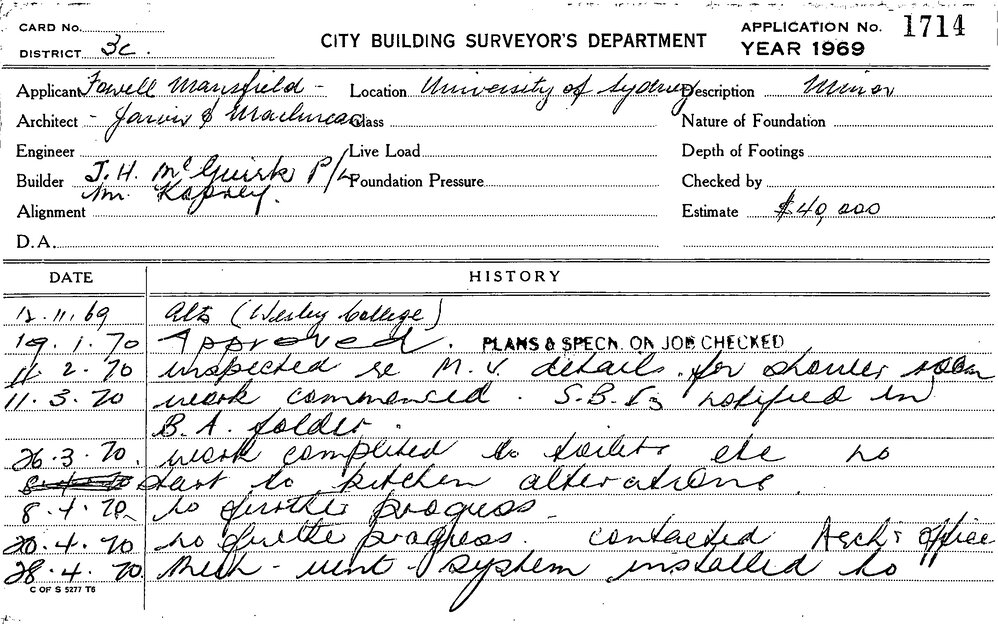 CARD No.
DISTRICT 3c.
CITY BUILDING SURVEYOR'S DEPARTMENT
APPLICATION No. 1714
YEAR 1969
Applicant Fowell Mansfield -
Location University of Sydney
Description Minor
Architect - Jarvis & Maclurcan
Class
Nature of Foundation
Engineer
Live Load
Depth of Footings
Builder J. H. McGuirk P/L
Mr.
Foundation Pressure
Checked by
Alignment
Estimate $40,000
D.A.
DATE
HISTORY
12.11.69 alts (Wesley College)
19.1.70 Approved. PLANS & SPECN. ON JOB CHECKED
11.2.70 inspected re M.V. details for shower room
11.3.70 work commenced. S.B. notified in
B.A. folder.
26.3.70. work completed to toilets etc no
start to kitchen alterations.
8.4.70 no further progress
20.4.70 no further progress. contacted Arch's office
28.4.70. Mech-vent-system installed no
C OF S 5277 T6